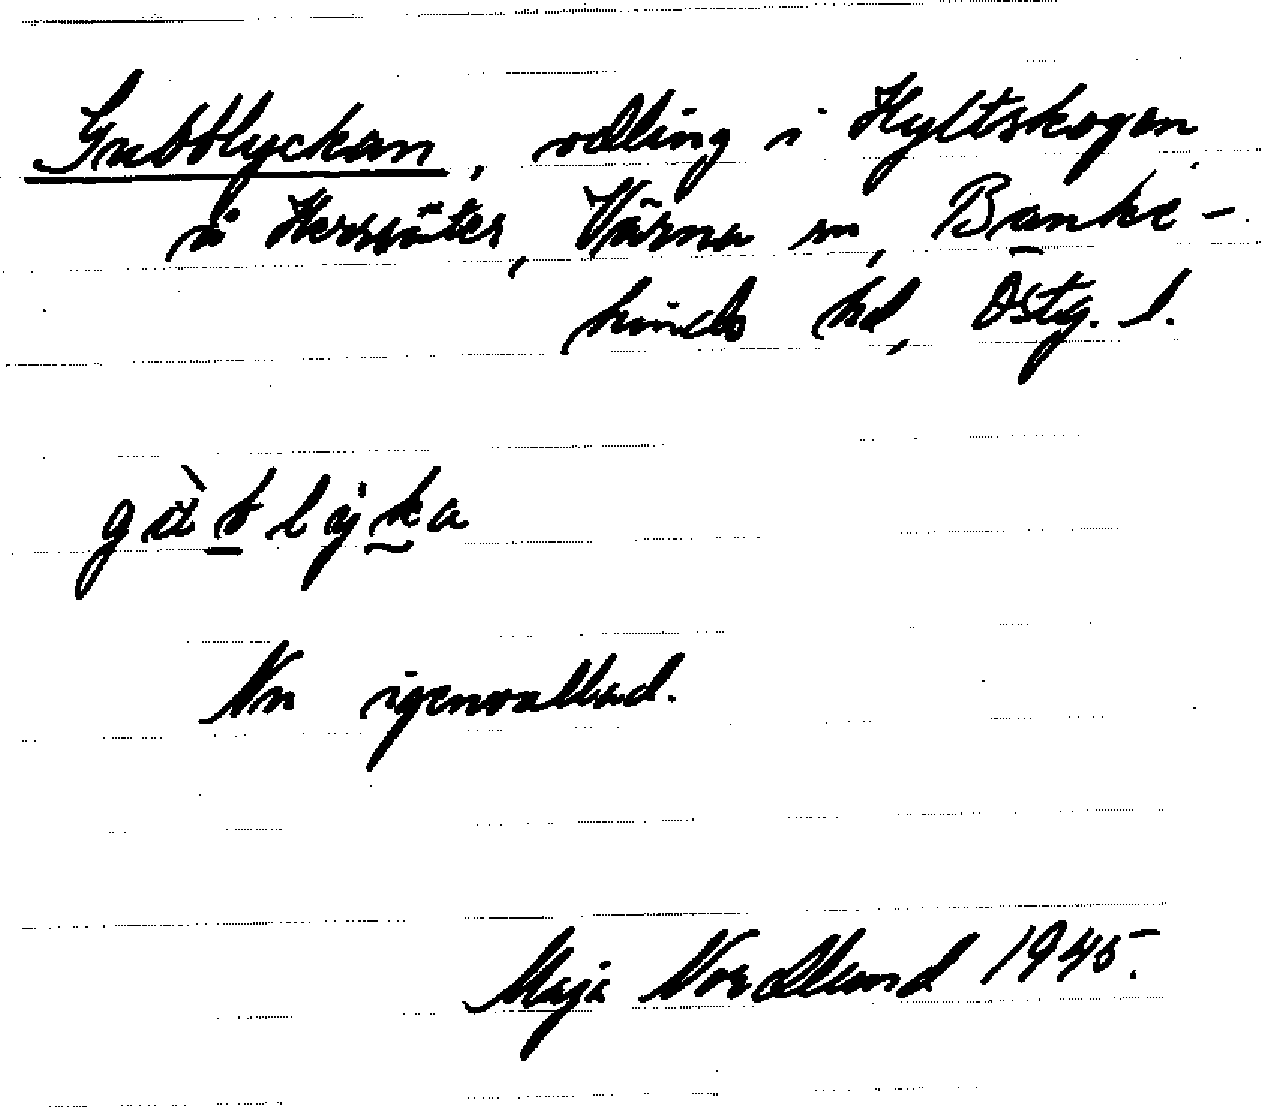 Gubblyckan, odling i Hyltskogen
å Herrsäter, Värna sn, Banke-
kinds hd, Östg. l.
gu̇̀blẏka
Nu igenvallad.
Maja Nordlund 1945.